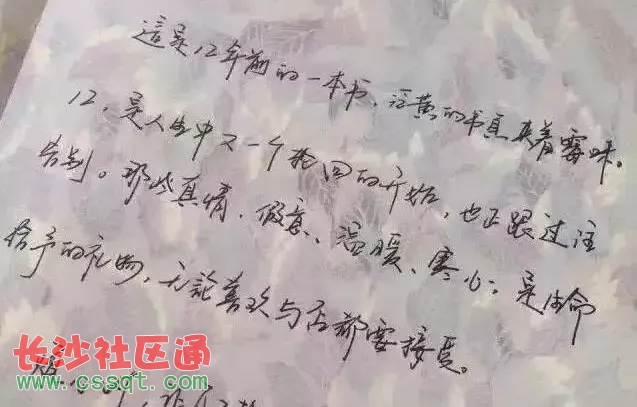 這是12年前的一本书，泛黄的书頁夹着霉味。
12，是人生中又一个轮回的开始，也正跟过往
告别。那些真情、假意、温暖、寒心，是生命
给予的礼物，无論喜欢与否都要接受。
长沙社区通
www.cssqt.com